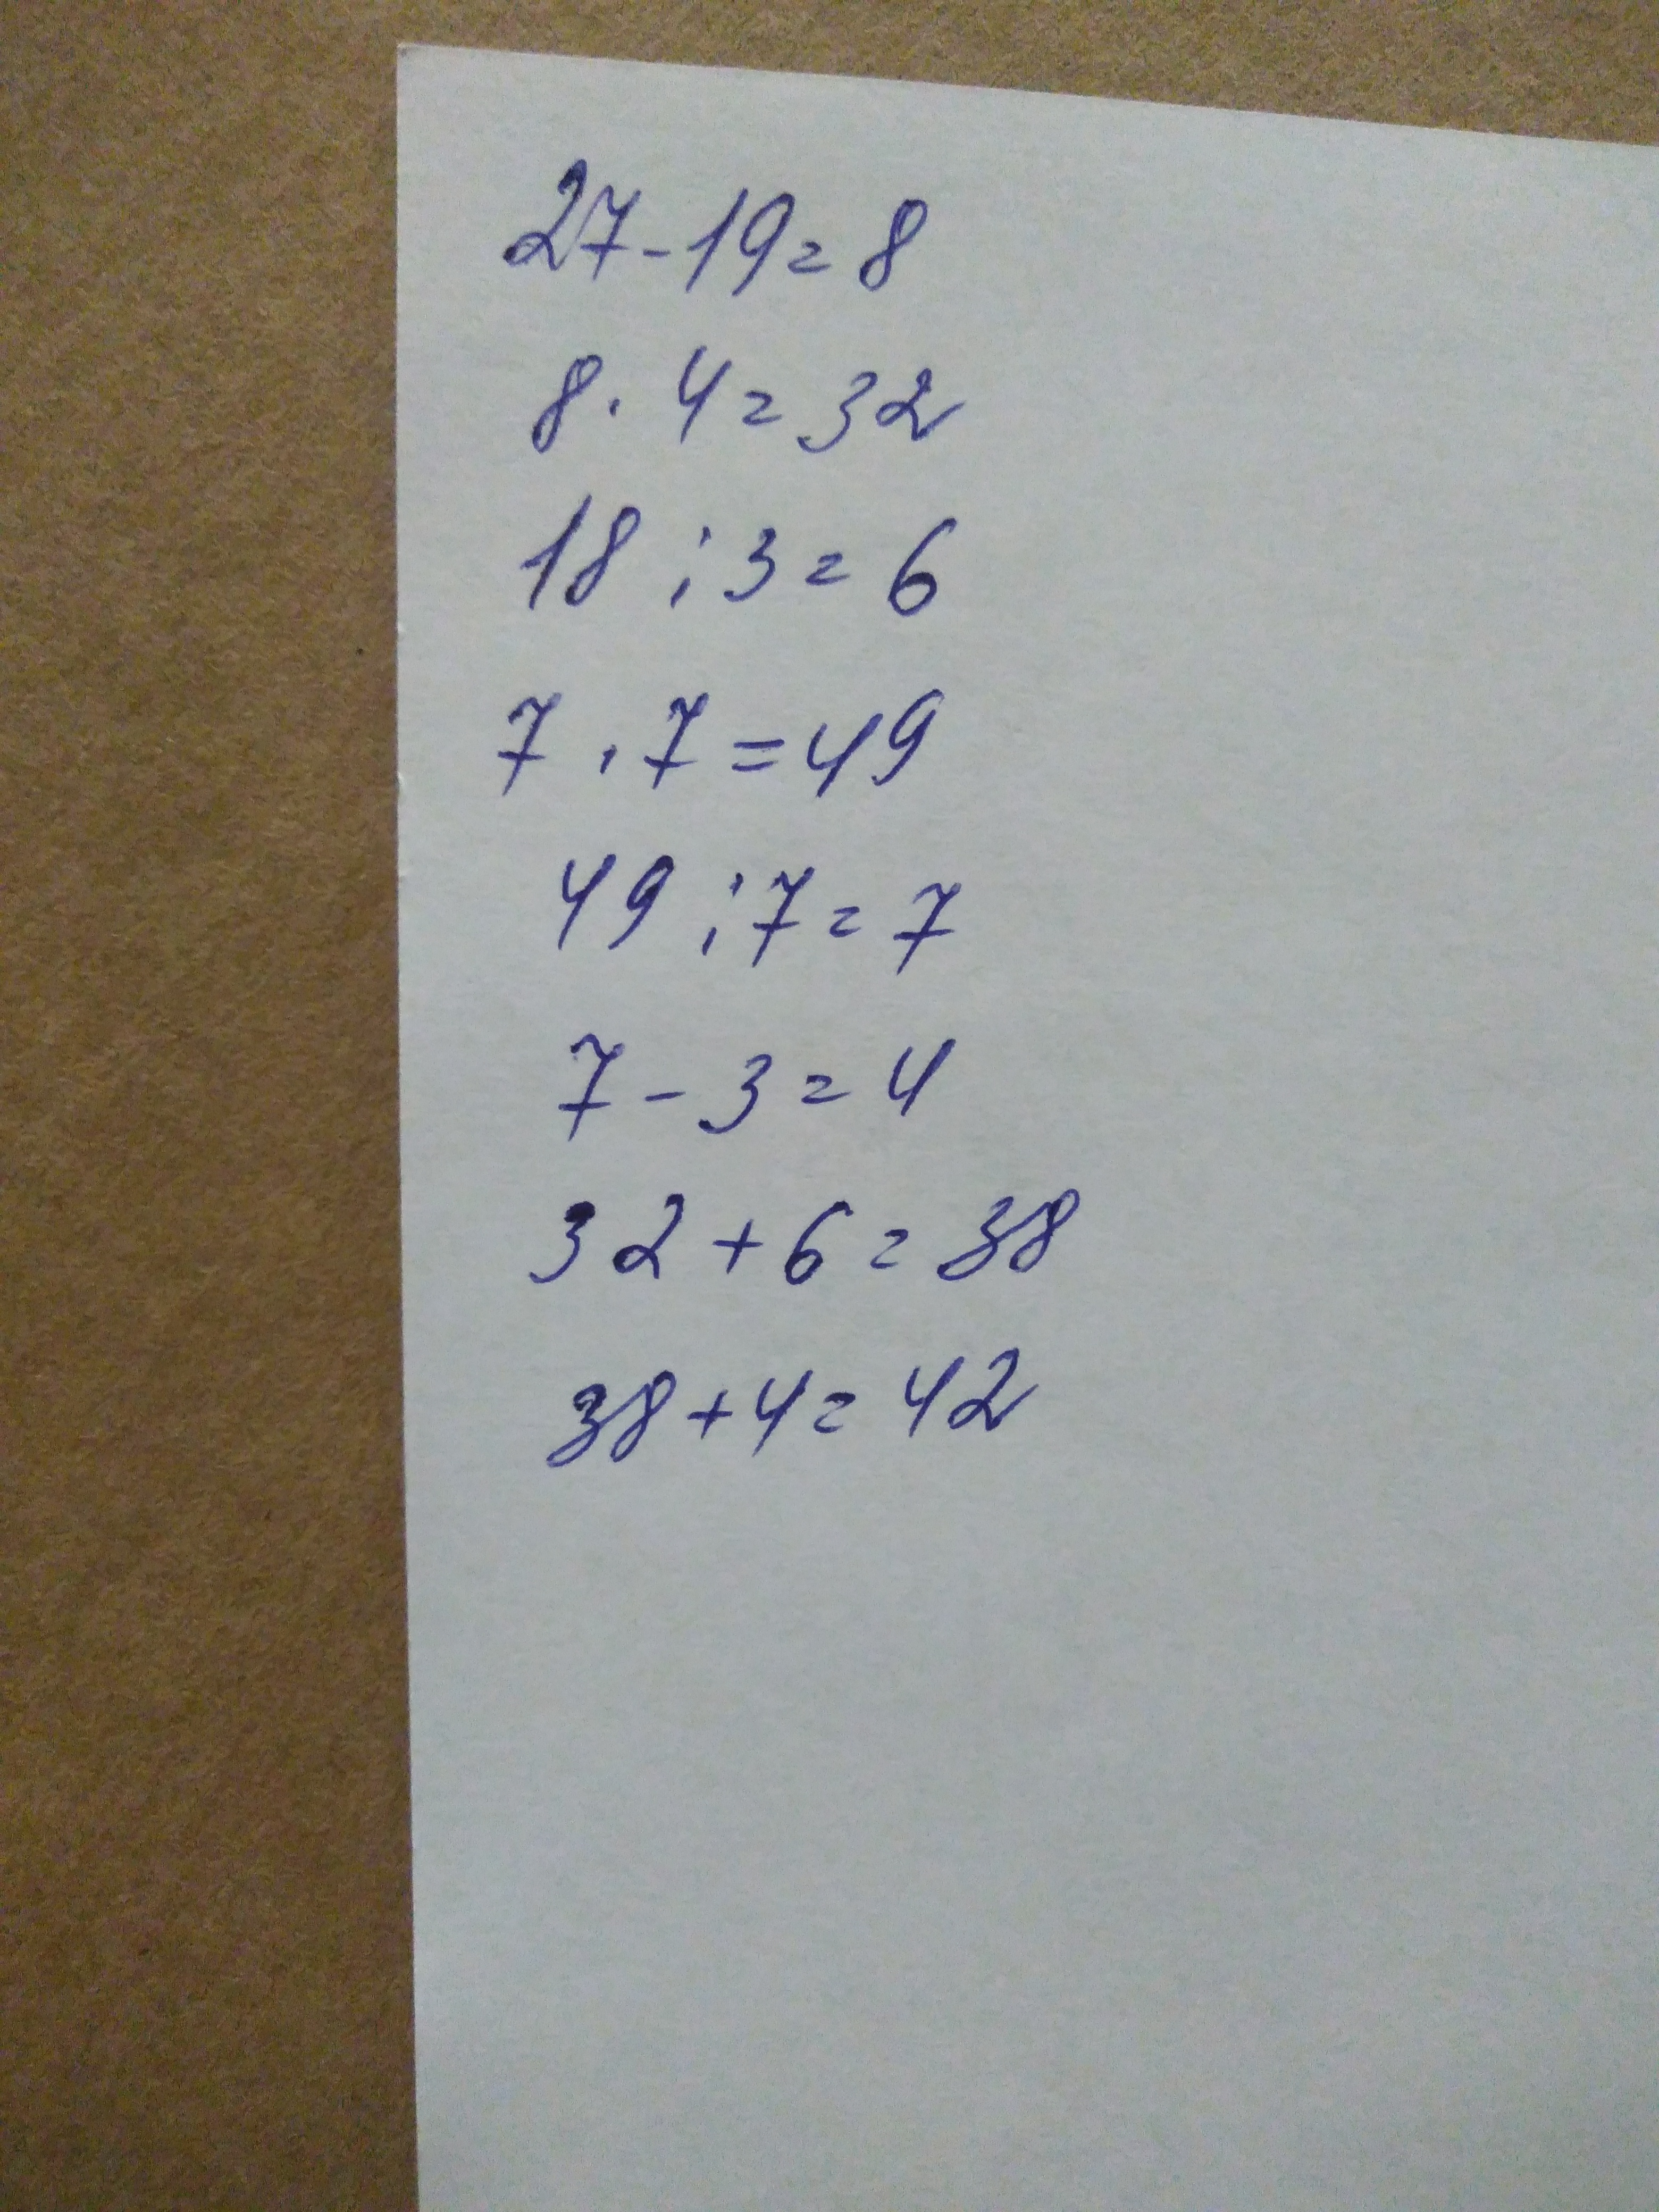 27-19=8
8·4=32
18:3=6
7·7=49
49:7=7
7-3=4
32+6=38
38+4=42